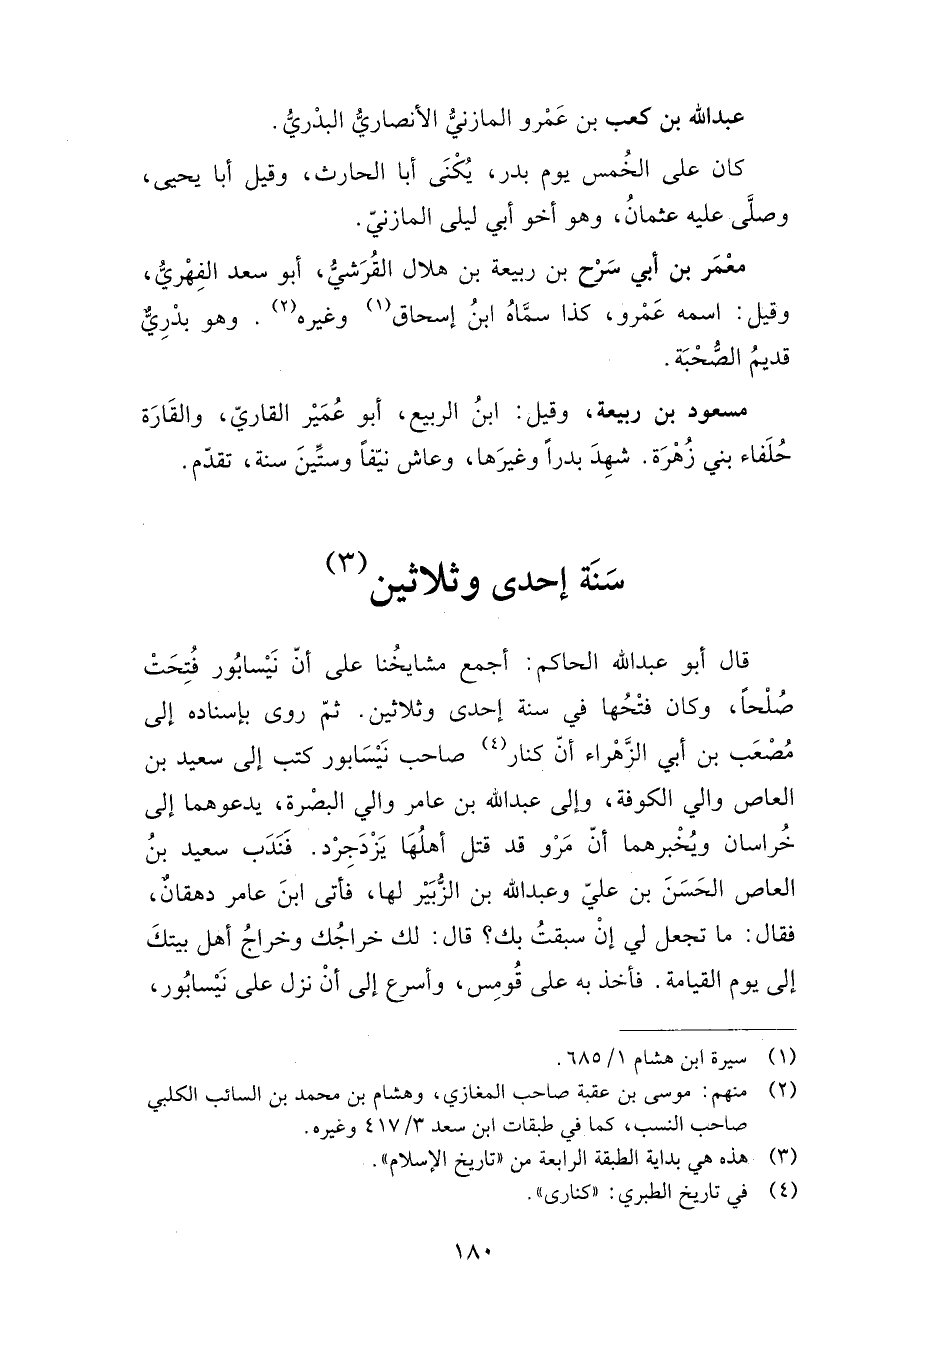 عبدالله بن كعب بن عَمْرو المازنيُّ الأنصاريُّ البدْريُّ.
كان على الخُمس يوم بدر، يُكْنَى أبا الحارث، وقيل أبا يحيى،
وصلَّى عليه عثمانُ، وهو أخو أبي ليلى المازنيّ.
معْمَر بن أبي سَرْح بن ربيعة بن هلال القُرَشيُّ، أبو سعد الفِهْريُّ،
وقيل: اسمه عَمْرو، كذا سمَّاهُ ابنُ إسحاق(١) وغيره(٢). وهو بدْرِيٌّ
قديمُ الصُّحْبَة.
مسعود بن ربيعة، وقيل: ابنُ الربيع، أبو عُمَيْر القاريّ، والقَارَة
حُلَفاء بني زُهْرَة. شهِدَ بدراً وغيرَها، وعاش نيّفاً وستِّينَ سنة، تقدّم.
سَنَة إحدى وثلاثين(٣)
قال أبو عبدالله الحاكم: أجمع مشايخُنا على أنّ نَيْسابُور فُتِحَتْ
صُلْحاً، وكان فتْحُها في سنة إحدى وثلاثين. ثمّ روى بإسناده إلى
مُصْعَب بن أبي الزَّهْراء أنّ كنار(٤) صاحب نَيْسَابور كتب إلى سعيد بن
العاص والي الكوفة، وإلى عبدالله بن عامر والي البصْرة، يدعوهما إلى
خُراسان ويُخْبرهما أنّ مَرْو قد قتل أهلُهَا يَزْدَجِرْد. فَنَدَب سعيد بنُ
العاص الحَسَنَ بن عليّ وعبدالله بن الزُّبَيْر لها، فأتى ابنَ عامر دهقانٌ،
فقال: ما تجعل لي إنْ سبقتُ بك؟ قال: لك خراجُك وخراجُ أهل بيتكَ
إلى يوم القيامة. فأخذ به على قُومِس، وأسرع إلى أنْ نزل على نَيْسابُور،
(١) سيرة ابن هشام ١/ ٦٨٥.
(٢) منهم: موسى بن عقبة صاحب المغازي، وهشام بن محمد بن السائب الكلبي
صاحب النسب، كما في طبقات ابن سعد ٣/ ٤١٧ وغيره.
(٣) هذه هي بداية الطبقة الرابعة من «تاريخ الإسلام».
(٤) في تاريخ الطبري: «كنارى».
١٨٠